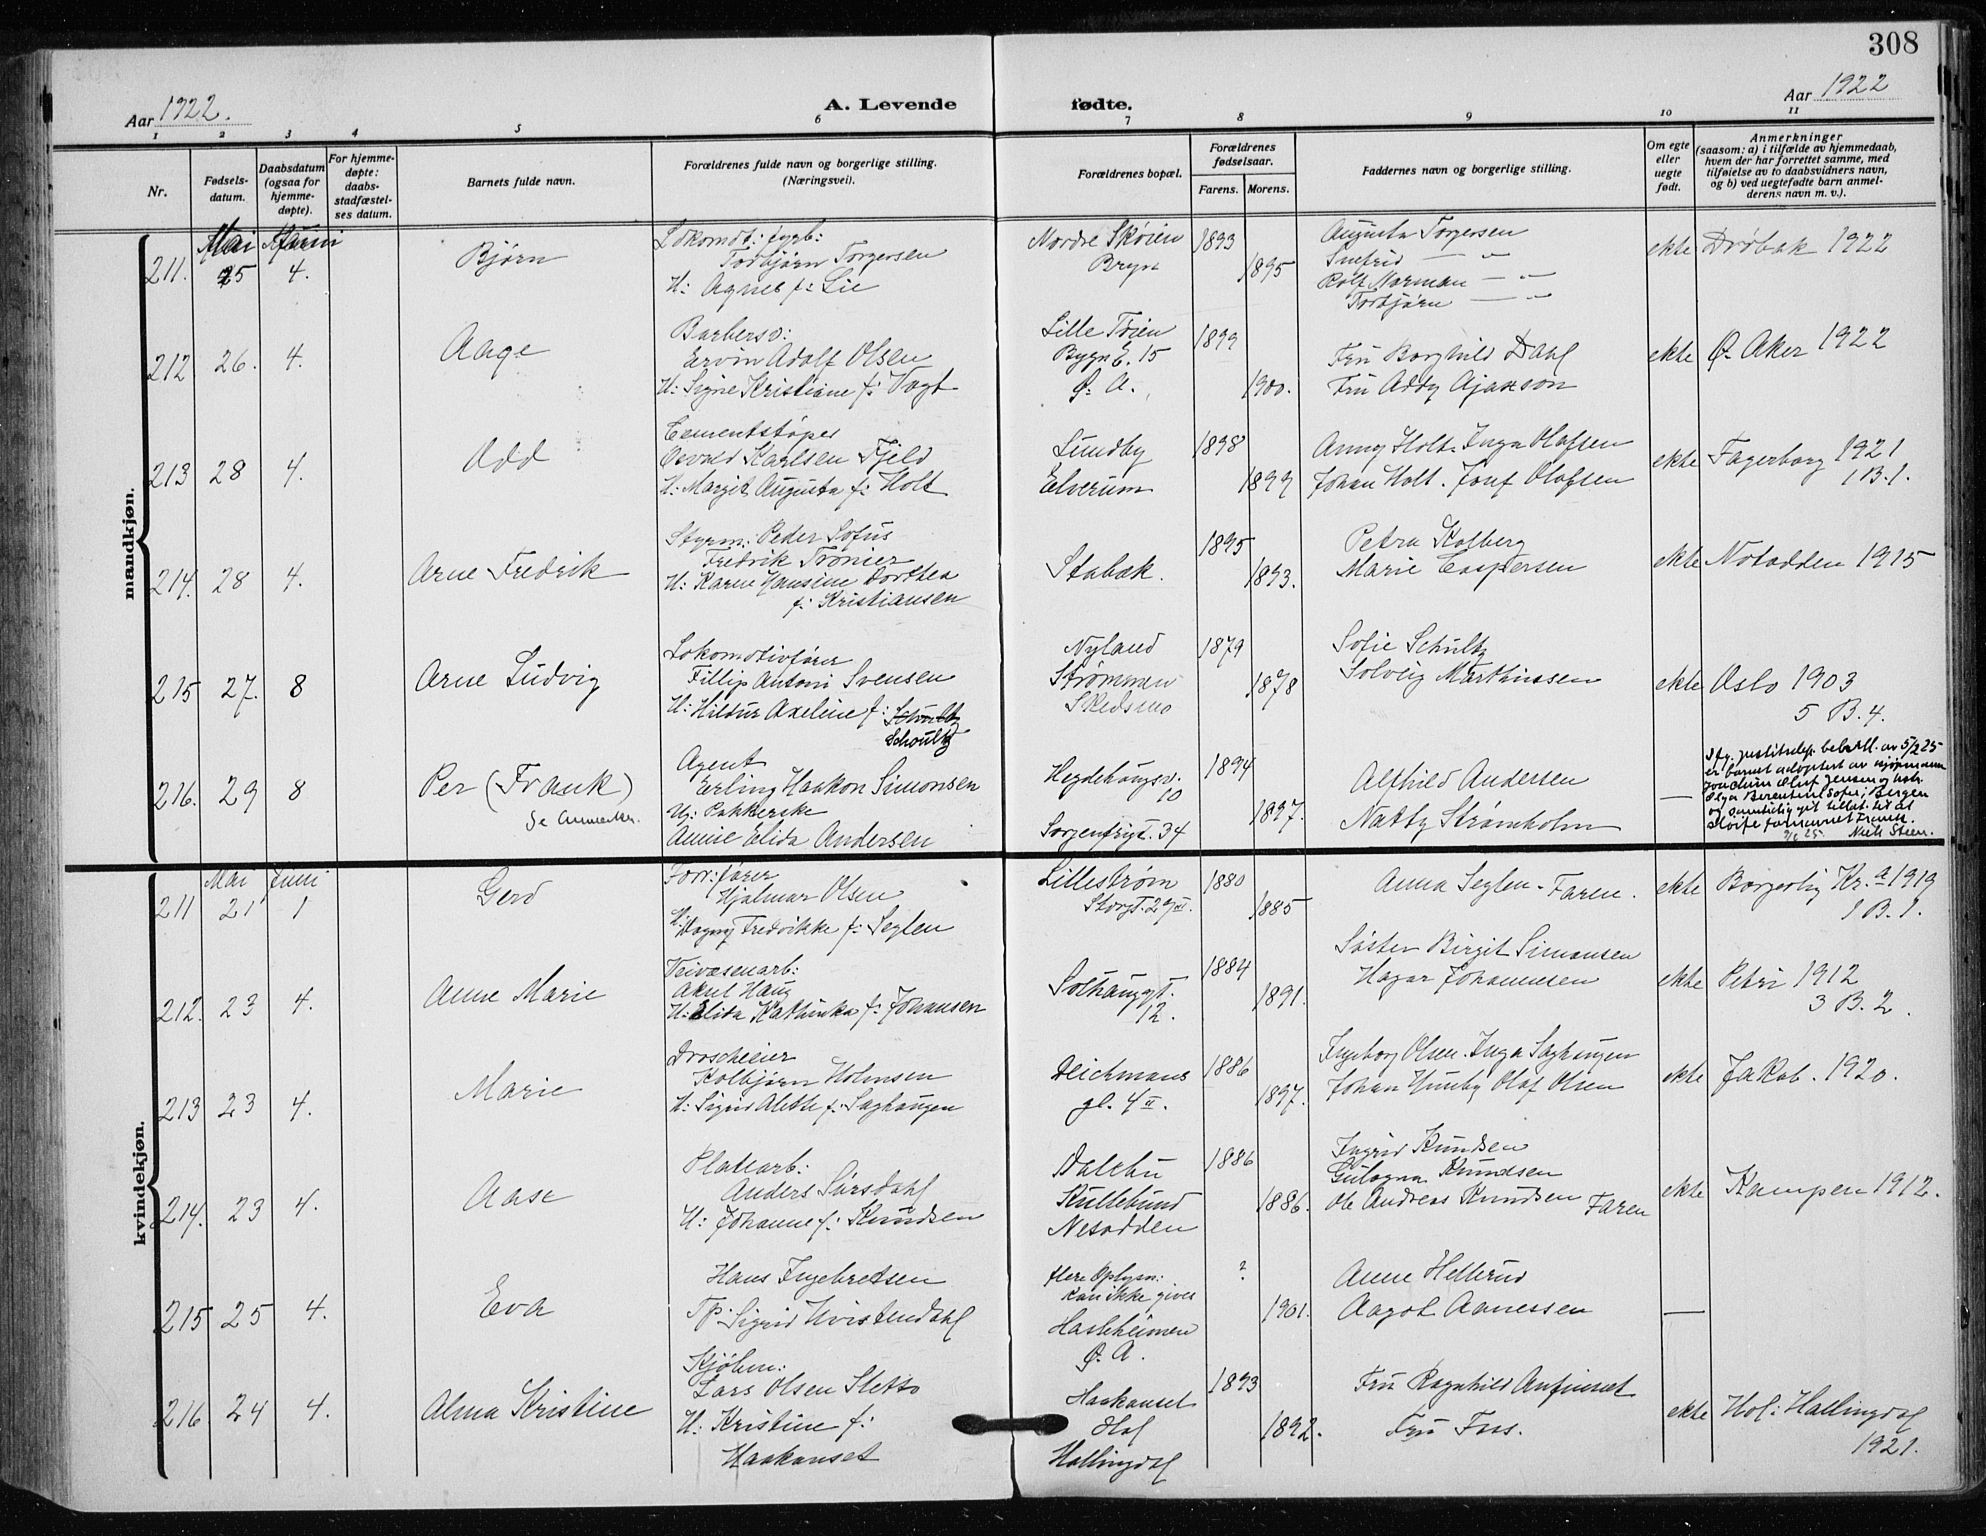 308
Aar 1922.
A. Levende
fødte.
Aar 1922
1 2 3 4 5 6 7 8 9 10 11
Nr.
Fødsels-
datum.
Daabsdatum
(ogsaa for
hjemme-
døpte).
For hjemme-
døpte:
daabs-
stadfæstel-
ses datum.
Barnets fulde navn.
Forældrenes fulde navn og borgerlige stilling.
(Næringsvei).
Forældrenes bopæl.
Forældrenes
fødselsaar.
Farens. Morens.
Faddernes navn og borgerlige stilling.
Om egte
eller
uegte
født.
Anmerkninger
(saasom: a) i tilfælde av hjemmedaab,
hvem der har forrettet samme, med
tilføielse av to daabsvidners navn,
og b) ved uegtefødte barn anmel-
derens navn m. v.).
mandkjøn.
Mai Juni
211. 25 4.
Bjørn
Lokomot: fyrb:
Torbjørn Torgersen
H: Agnes f: Lie
Nordre Skøien
Bryn
1893
1895
Augusta Torgersen
Snefrid — "
Rolf Norman — "
Torbjørn — "
ekte
Drøbak 1922
212 26. 4.
Aage
Barbersv:
Ervin Adolf Olsen
H: Signe Kristiane f: Vogt
Lille Tøien
Bygn E. 15
Ø. A.
1899
1900.
Fru Borghild Dahl
Fru Addy Ajaxson
ekte
Ø. Aker 1922
213 28 4.
Odd
Cementstøper
Osvald Karlsen Fjeld
H: Margit Augusta f: Holt
Lundby
Elverum
1898
1899
Anny Holt. Inga Olafsen
Johan Holt. Josef Olafsen
ekte
Fagerborg 1921
1 B. 1.
214. 28 4.
Arne Fredrik
Styrm: Peder Sofus
Fredrik Trønier
H: Karne Hansine Dorthea
f: Kristiansen
Stabæk.
1895
1893.
Petra Kolberg
Marie Caspersen
ekte
Notodden 1915
215 27. 8
Arne Ludvig
Lokomotivfører
Fillip Antoni Svensen
H: Hildur Axeline f: Schultz
Schoultz
Nyland
Strømmen
Skedsmo
1879
1878
Sofie Schultz
Solveig Marthinsen
ekte
Oslo 1903
5 B. 4.
216. 29 8
Per (Frank)
Se Anmerkn.
Agent
Erling Haakon Simonsen
Ug: Pakkerske
Annie Elida Andersen
Hegdehaugsv.
10
Sorgenfrigt. 34
1894
1897.
Alfhild Andersen
Natty Strømholm
—
Ifg. justitsdep. bebrill. av 5/2 25
er barnet adoptert av kjøpmann
Joachim Oluf Jensen og hustr.
Olga Berentine Sofie, Bergen
og samtidig git tillat. til at
Niels Steen.
kvindekjøn.
Mai Juni
211 21 1
Gerd
Forr: fører
Hjalmar Olsen
H: Dagny Fredrikke f: Seglen
Lillestrøm
Storgt. 29 II.
1880
1885
Anna Seglen - Faren.
ekte
Borgerlig Kr.a 1919
1 B. 1.
212. 23 4.
Anne Marie
Veivæsenarb:
Aksel Haug
H: Elida Kathinka f: Johansen
Solhaugt.
12.
1884
1891.
Søster Birgit Simonsen
Hagar Johannesen
ekte
Petri 1912
3 B. 2.
213 23 4.
Marie
Droscheeier
Kolbjørn Holmsen
H: Sigrid Alette f: Saghaugen
Deichmans
gl. 4 II.
1886
1897.
Ingeborg Olsen. Inga Saghaugen
Johan Huseby Olaf Olsen
ekte
Jakob. 1920.
214. 23 4.
Aase
Platearb:
Anders Sørsdahl
H: Johanne f: Knudsen
Dalebu
Kullebund
Nesodden
1886
1886.
Ingrid Knudsen
Gulogna Knudsen
Ole Andreas Knudsen Faren
ekte
Kampen 1912.
215 25 4.
Eva
Hans Ingebretsen
Tp: Sigrid Hvistendahl
flere Oplysn:
kan ikke gives
Hasleheimen
Ø. A.
?
1901.
Anne Hellerud
Aagot Aanessen
—
216 24 4.
Alma Kristine
Kjøbm:
Lars Olsen Sletto
H: Kristine f:
Haakanset
Haakanset
Hol
Hallingdal
1893
1892.
Fru Ragnhild Anfinset
Fru Foss.
ekte
Hol: Hallingdal
1921.